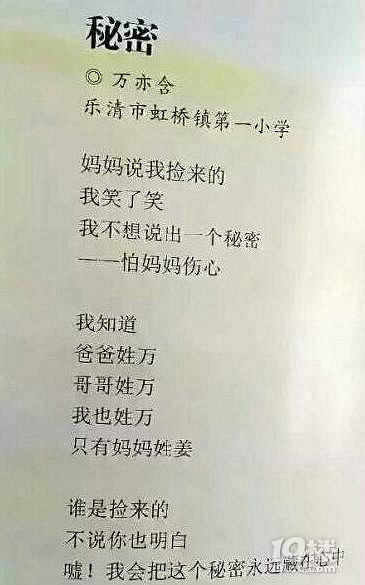 秘密
◎ 万亦含
乐清市虹桥镇第一小学
妈妈说我捡来的
我笑了笑
我不想说出一个秘密
——怕妈妈伤心
我知道
爸爸姓万
哥哥姓万
我也姓万
只有妈妈姓姜
谁是捡来的
不说你也明白
嘘！我会把这个秘密永远藏在心中